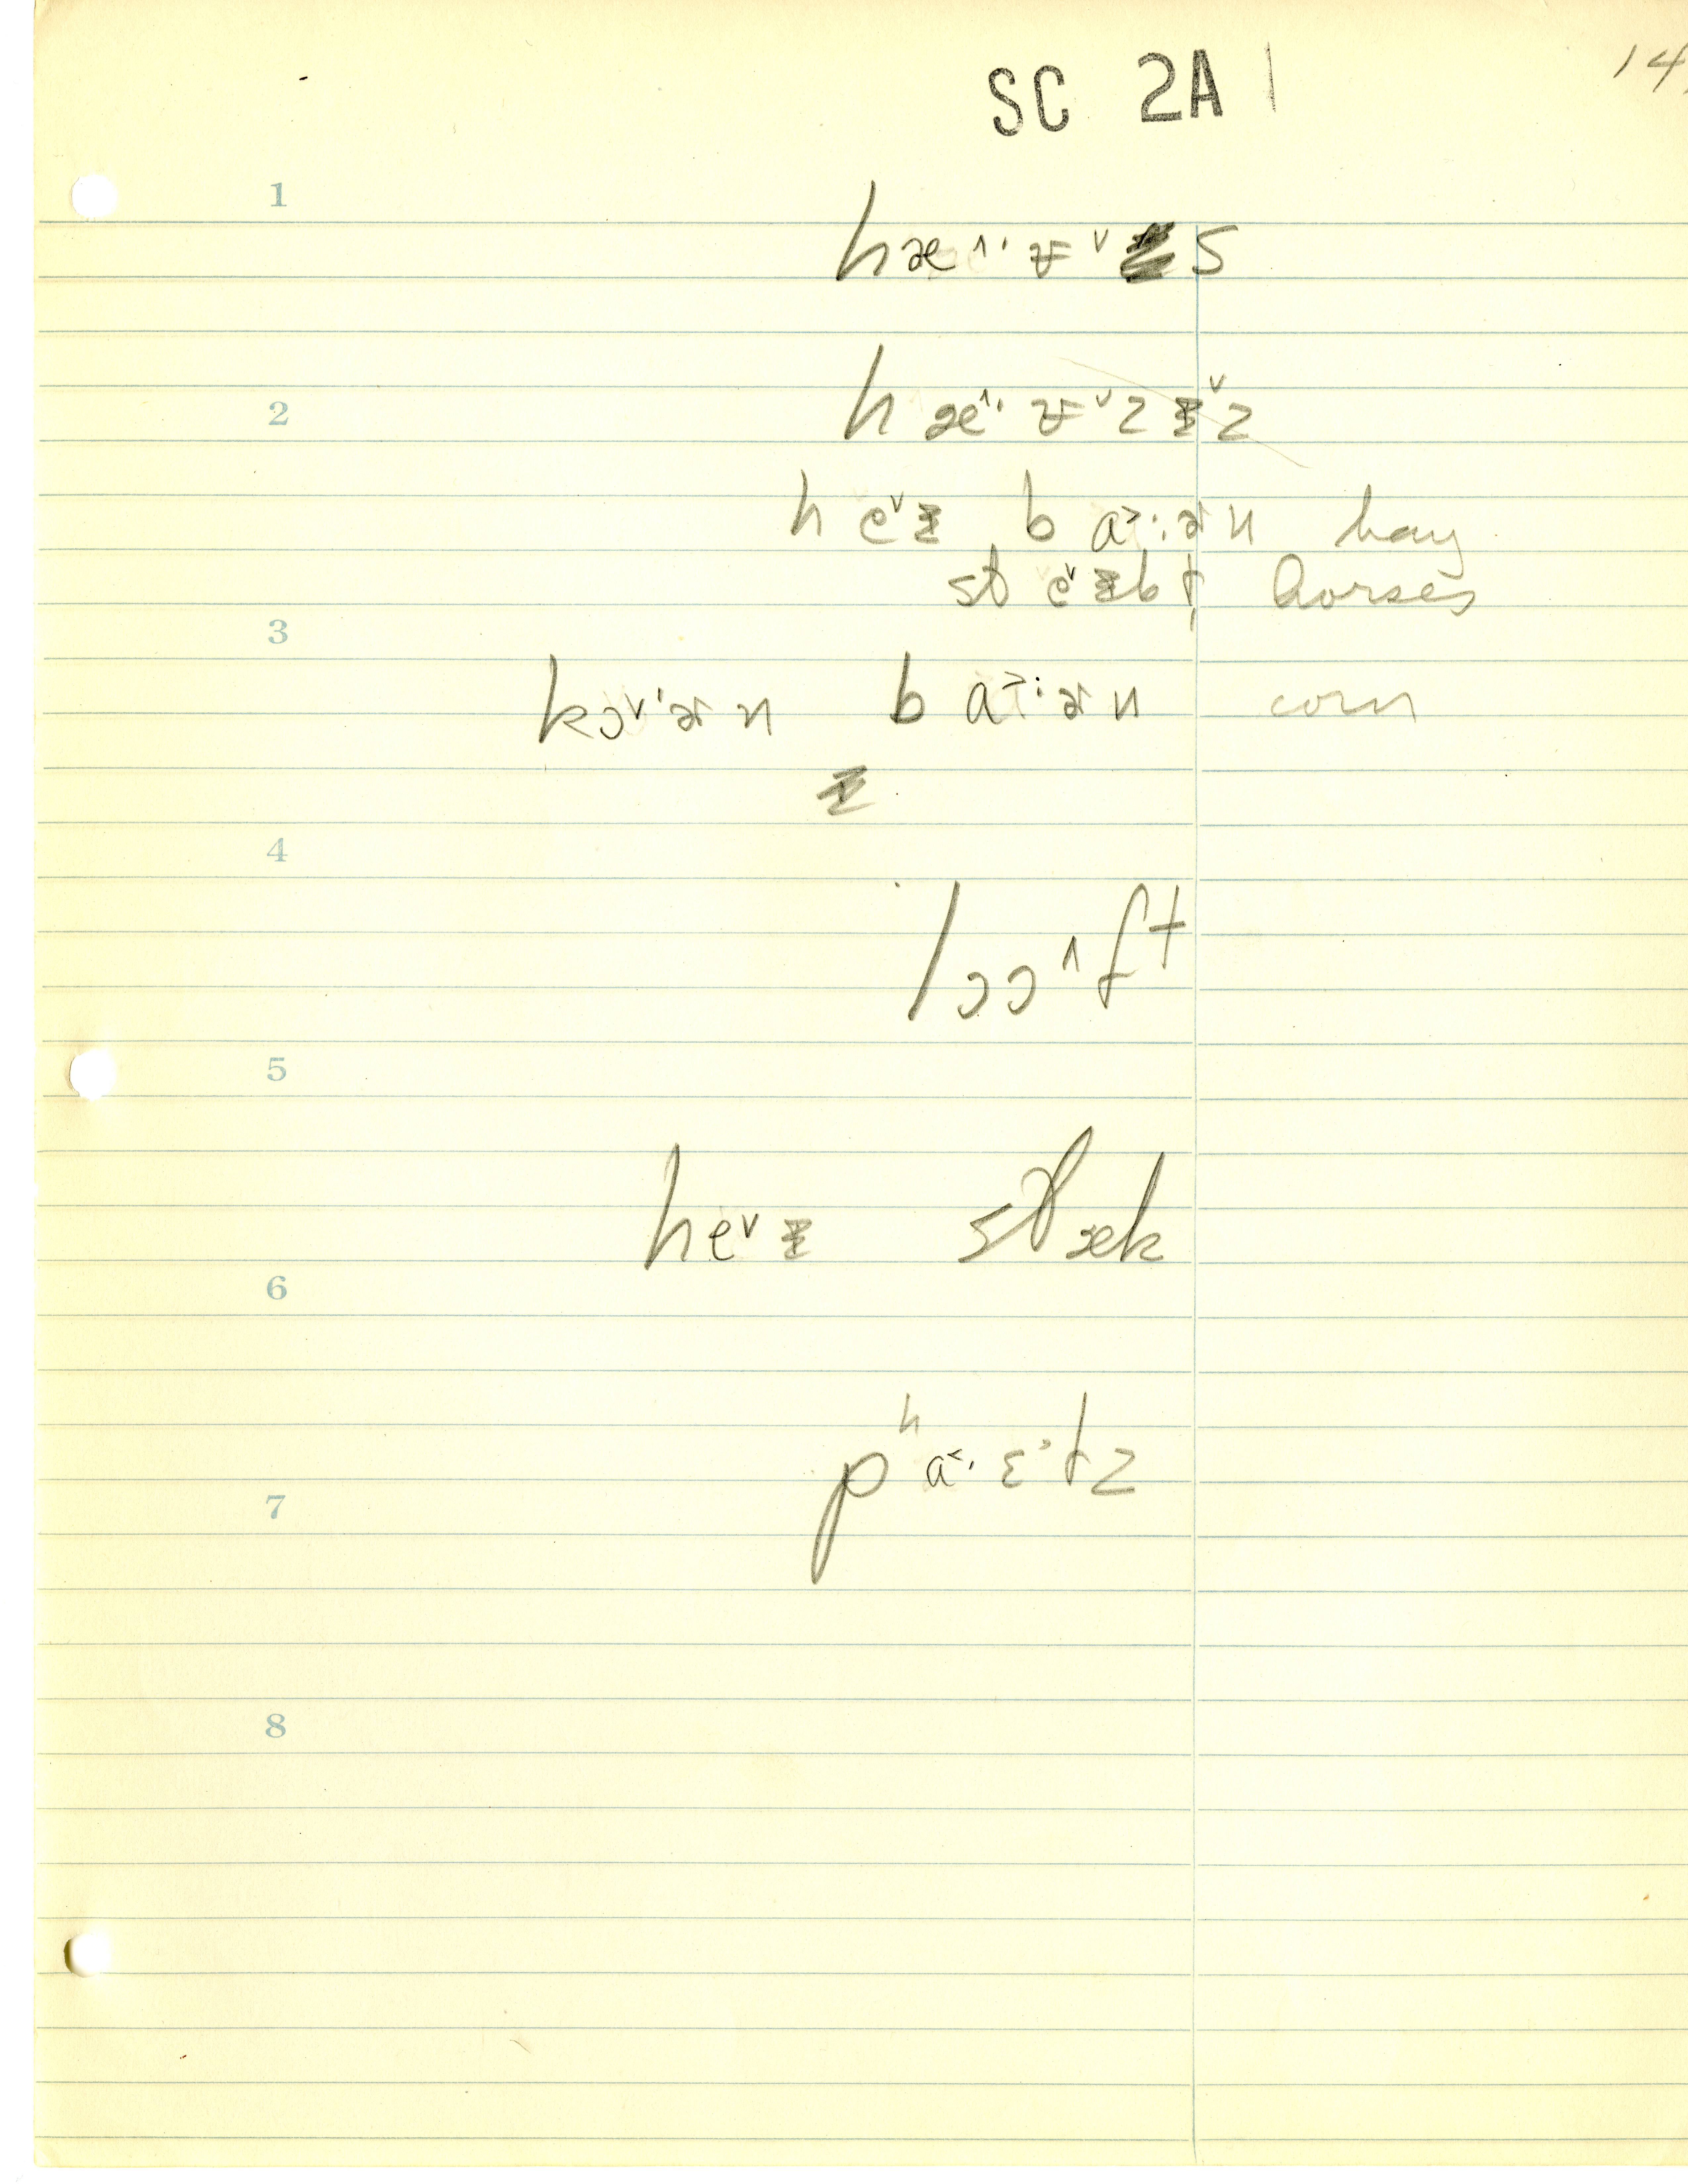 SC 2A 14
1
hæ^·ɤˇs
2
hæ^·ɤˇzɪˇz
heˇɪ ba˃·ɚn hay
steˇɪbɫ horses
3
kɔˇ·ɚn ba˃·ɚn corn
ɪ
4
lɔɔ^ft
5
heˇɪ stæk
6
pʰa˂·ɛ˒ɫz
7
8